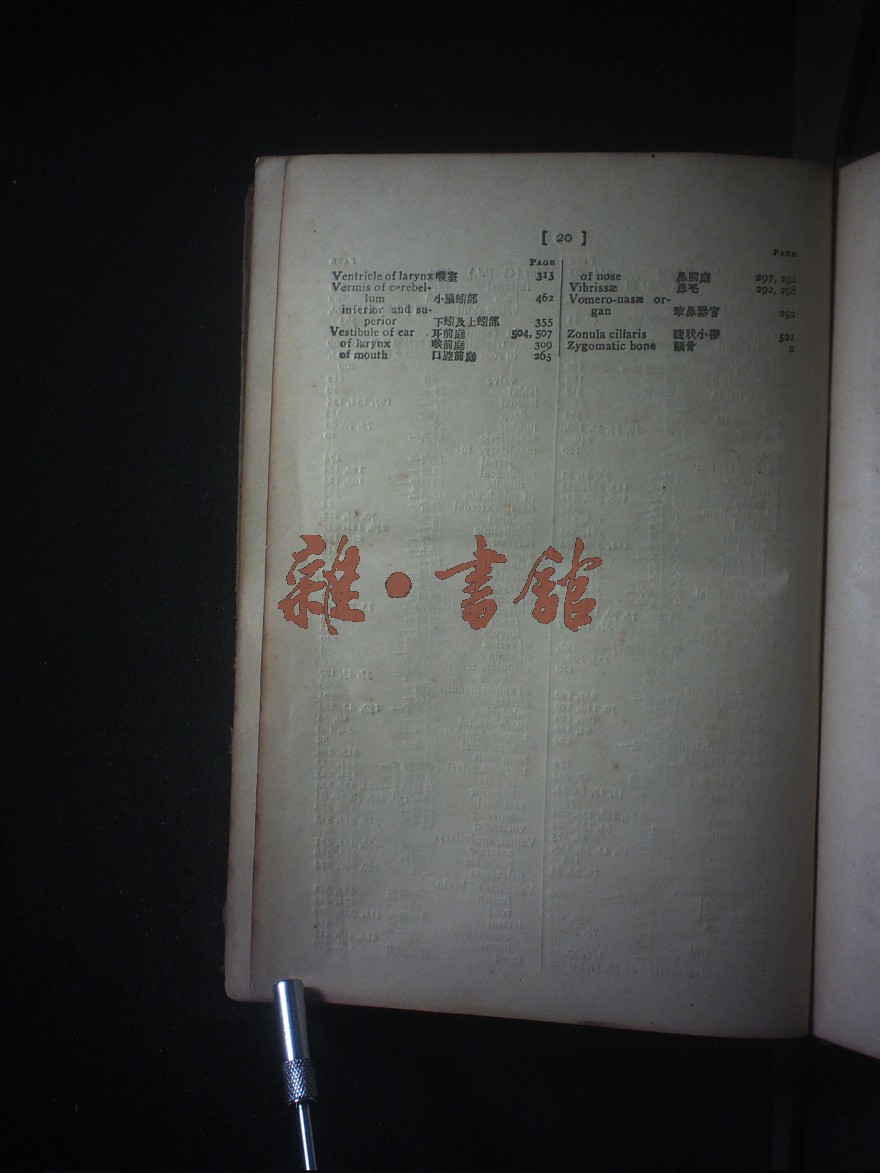 [ 20 ]
PAGE
Ventricle of larynx 喉室 313
Vermis of cerebel-
lum 小腦蚓部 462
inferior and su-
perior 下蚓及上蚓部 355
Vestibule of ear 耳前庭 504, 507
of larynx 喉前庭 309
of mouth 口腔前庭 265
PAGE
of nose 鼻前庭 297, 292
Vibrissæ 鼻毛 292, 298
Vomero-nasæ or-
gan 犂鼻器官 292
Zonula cillaris 睫狀小帶 521
Zygomatic bone 顴骨 2
雜·書館